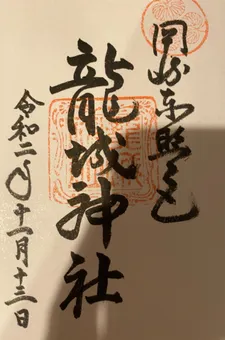 岡崎東照公
龍城神社
令和二年十一月十三日